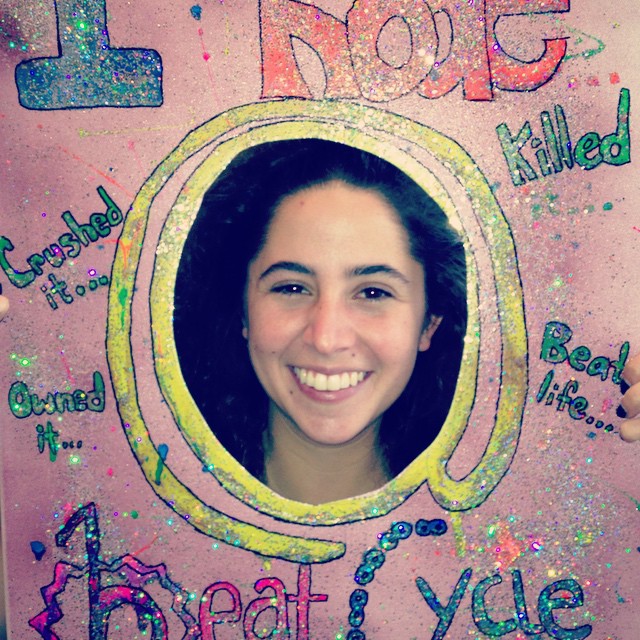 I rode
Killed
Crushed
it...
@
Beat
life...
Owned
it...
beat Cycle